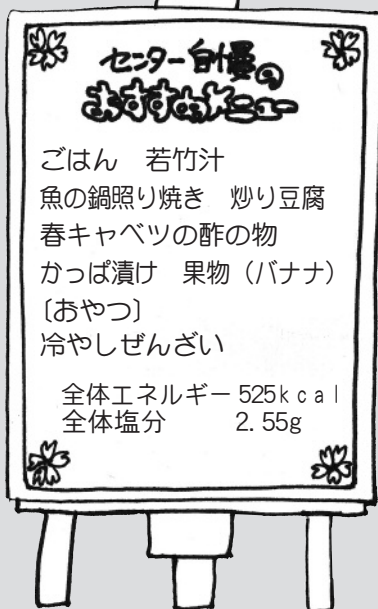 センター自慢の
おすすめメニュー
ごはん　若竹汁
魚の鍋照り焼き　炒り豆腐
春キャベツの酢の物
かっぱ漬け　果物（バナナ）
〔おやつ〕
冷やしぜんざい
全体エネルギー 525kcal
全体塩分　2.55g